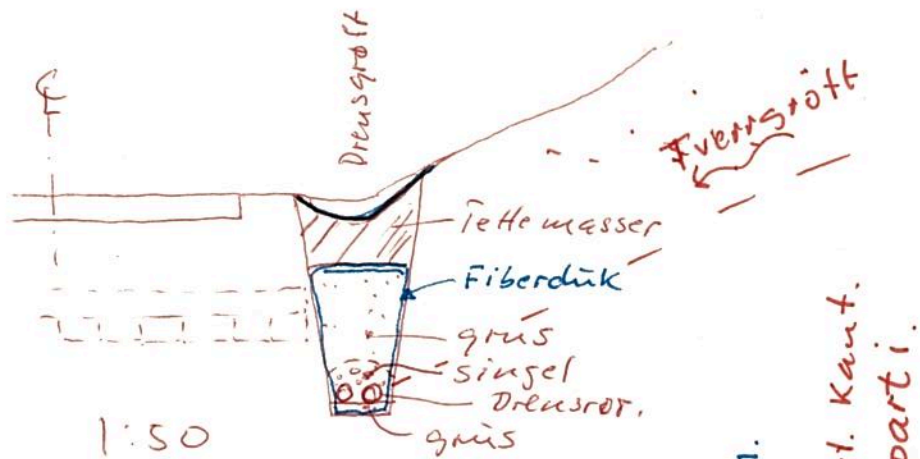 ℄
Drensgrøft
Tverrgrøft
Tettemasser
Fiberduk
grus
singel
Drensrør.
grus
1:50
t. kant.
parti.